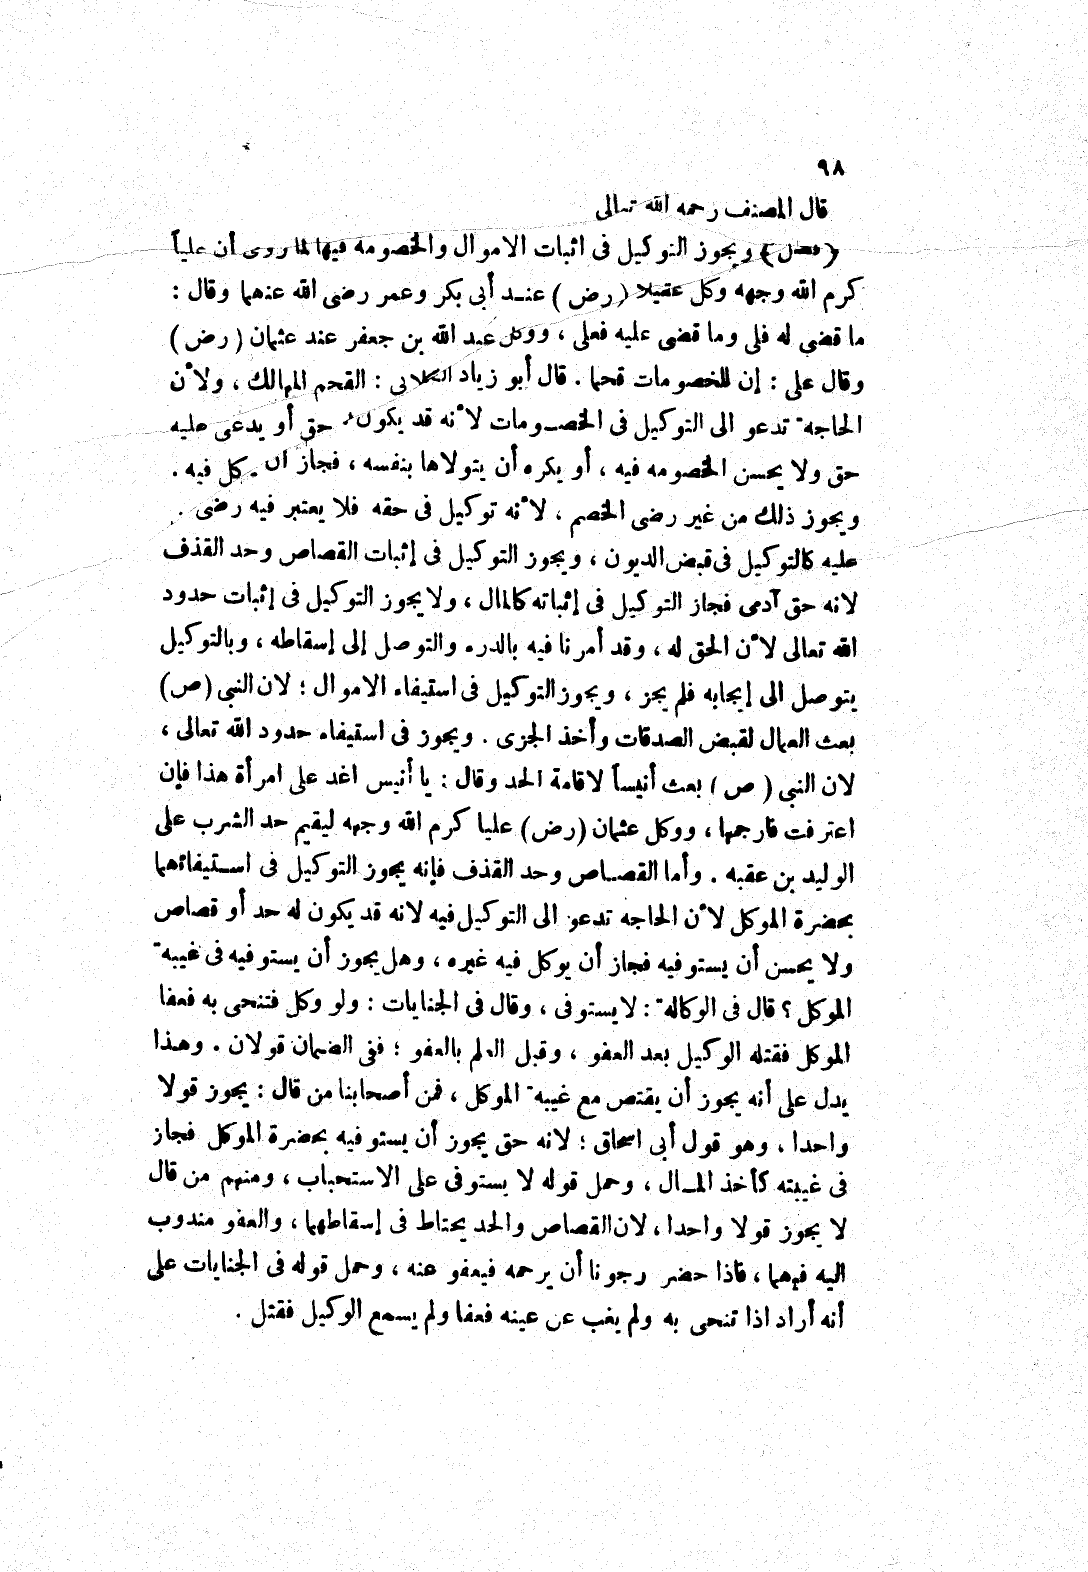 ٩٨
قال المصنف رحمه الله تعالى
(فصل) ويجوز التوكيل فى اثبات الاموال والخصومه فيها لما روى أن علياً
كرم الله وجهه وكل عقيلا (رض) عنـد أبى بكر وعمر رضى الله عنهما وقال :
ما قضى له فلى وما قضى عليه فعلى ، ووكل عبد الله بن جعفر عند عثمان (رض)
وقال على : إن للخصومات قحما . قال أبو زياد الكلابى : القحم المهالك ، ولأن
الحاجه تدعو الى التوكيل فى الخصـومات لأنه قد يكون حق أو يدعى عليه
حق ولا يحسن الخصومه فيه ، أو يكره أن يتولاها بنفسه ، فجاز ان يوكل فيه .
ويجوز ذلك من غير رضى الخصم ، لأنه توكيل فى حقه فلا يعتبر فيه رضى
عليه كالتوكيل فى قبض الديون ، ويجوز التوكيل فى إثبات القصاص وحد القذف
لانه حق آدمى فجاز التوكيل فى إثباته كالمال ، ولا يجوز التوكيل فى إثبات حدود
الله تعالى لأن الحق له ، وقد أمرنا فيه بالدرء والتوصل إلى إسقاطه ، وبالتوكيل
يتوصل الى إيجابه فلم يجز ، ويجوز التوكيل فى استيفاء الاموال ؛ لان النبى (ص)
بعث العمال لقبض الصدقات وأخذ الجزى . ويجوز فى استيفاء حدود الله تعالى ،
لان النبى (ص) بعث أنيساً لاقامة الحد وقال : يا أنيس اغد على امرأة هذا فإن
اعترفت فارجمها ، ووكل عثمان (رض) عليا كرم الله وجهه ليقيم حد الشرب على
الوليد بن عقبه . وأما القصـاص وحد القذف فإنه يجوز التوكيل فى اسـتيفائهما
بحضرة الموكل لأن الحاجه تدعو الى التوكيل فيه لانه قد يكون له حد أو قصاص
ولا يحسن أن يستوفيه فجاز أن يوكل فيه غيره ، وهل يجوز أن يستوفيه فى غيبه
الموكل ؟ قال فى الوكاله : لا يستوفى ، وقال فى الجنايات : ولو وكل فتنحى به فعفا
الموكل فقتله الوكيل بعد العفو ، وقبل العلم بالعفو ؛ ففى الضمان قولان . وهـذا
يدل على أنه يجوز أن يقتص مع غيبه الموكل ، فمن أصحابنا من قال : يجوز قولا
واحدا ، وهو قول أبى اسحاق ؛ لانه حق يجوز أن يستوفيه بحضرة الموكل فجاز
فى غيبته كأخذ المـال ، وحمل قوله لا يستوفى على الاستحباب ، ومنهم من قال
لا يجوز قولا واحدا ، لان القصاص والحد يحتاط فى إسقاطهما ، والعفو مندوب
اليه فيهما ، فاذا حضر رجونا أن يرحمه فيعفو عنه ، وحمل قوله فى الجنايات على
أنه أراد اذا تنحى به ولم يغب عن عينه فعفا ولم يسمع الوكيل فقتل .